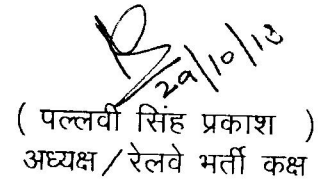 29/10/18
( पल्लवी सिंह प्रकाश )
अध्यक्ष / रेलवे भर्ती कक्ष